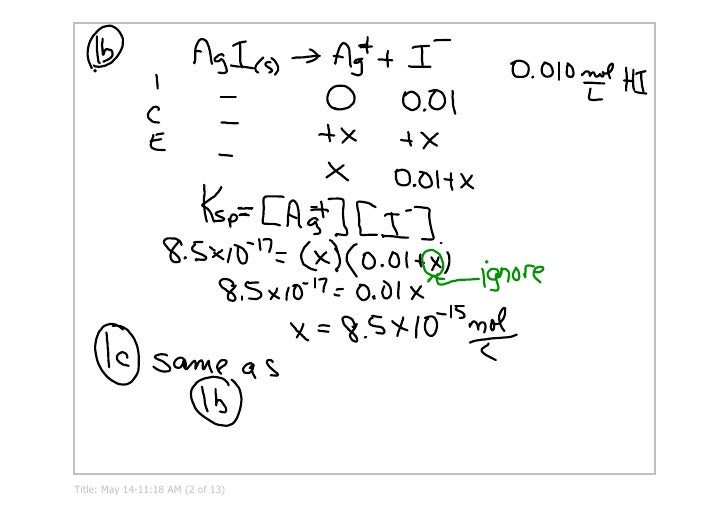 1b AgI(s) → Ag⁺ + I⁻
0.010 mol/L HI
I – 0 0.01
C – +x +x
E – x 0.01+x
Ksp = [Ag⁺][I⁻]
8.5×10⁻¹⁷ = (x)(0.01+x)
ignore
8.5×10⁻¹⁷ = 0.01x
x = 8.5×10⁻¹⁵ mol/L
1c same as
1b
Title: May 14-11:18 AM (2 of 13)